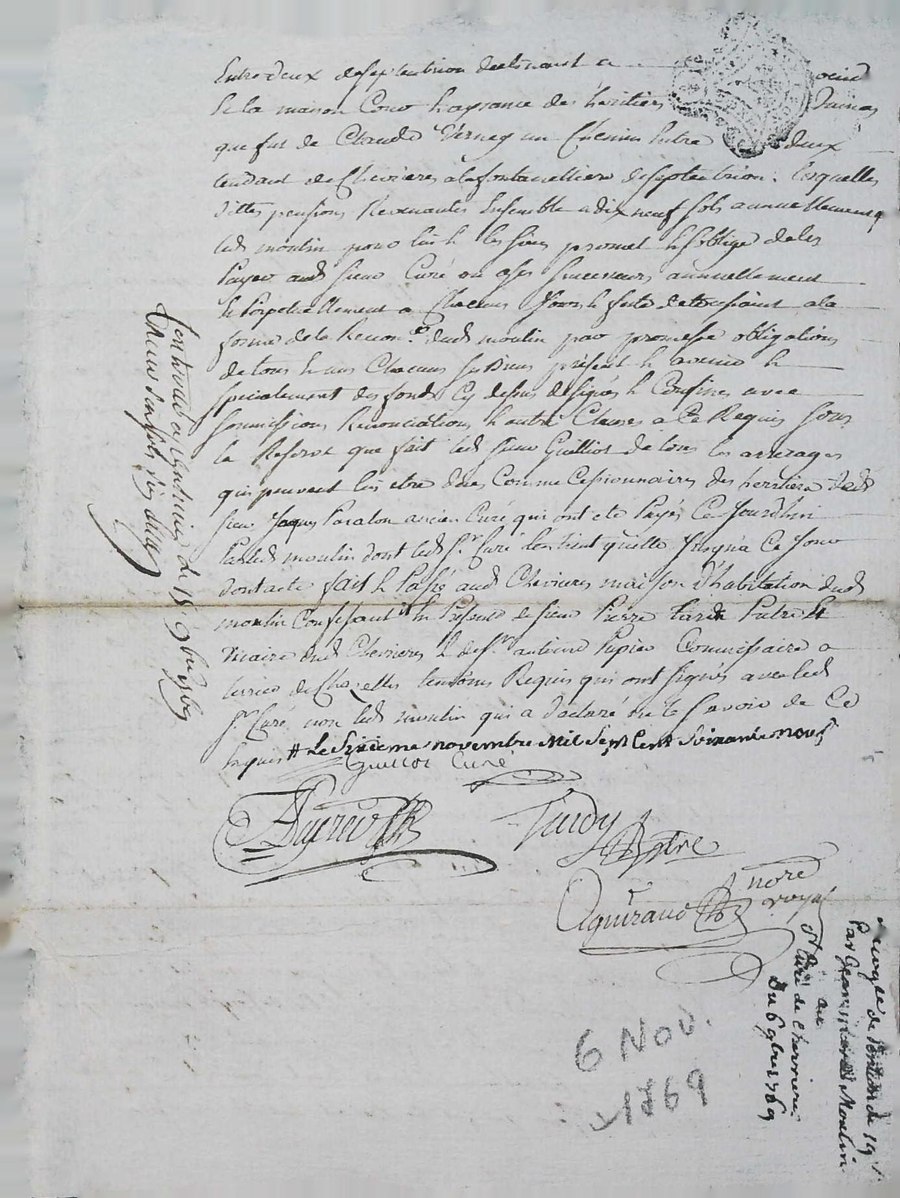 Entre deux de septentrion declinant a
de la maison Cour hayzance des heritiers
que fut de Claude Verney un Chemin Entre deux
tendant de Chevrieres a la fontanelliere de septentrion. lesquelles
dittes pensions Revenantes Ensemble a dix neuf sols annuellement
led moulin pour luy & les siens promet & s'oblige de les
Payer aud sieur Curé ou a ses successeurs annuellement
& Perpetuellement a Chacun Jour & feste de toussaint a la
forme de la Reconn.ce dud moulin par promesse obligations
de tous & uns Chacuns ses biens présent & avenir &
specialement des fonds Cy dessus designés & Confinés avec
soumissions Renonciations & autre Clauses a Ce Requis sous
la Reserve que fait led sieur Guilliot de tous les arrerages
qui peuvent luy etre dûs Comme Cessionnaires des herritiers dud
sieur Jaques Paralon ancien Curé qui ont eté Payés Ce Jourdhuy
Par led moulin dont led Sr Curé le tient quitte Jusqu'a Ce Jour
dont acte fait & Passé aud Chevrieres maison d'habitation dud
moulin Confessant En Presence de sieur Pierre tardy Pretre &
Vicaire dud Chevrieres & de Sr antoine Papier Commissaire a
terrier de Chazelles temoins Requis qui ont signés avec led
Sr Curé non led moulin qui a declaré ne le savoir de Ce
Enquis # Le Sixieme novembre Mil Sept Cent Soixante neuf
Guilliot Curé
Tardy
Ptre
Aguiraud
nore
royal
Controllé a
de 15 9bre 1769
6 Nov.
1769
de Pention de 19 s
Par Moulin
au
Sr Curé de Chevrieres
Du 6 9bre 1769